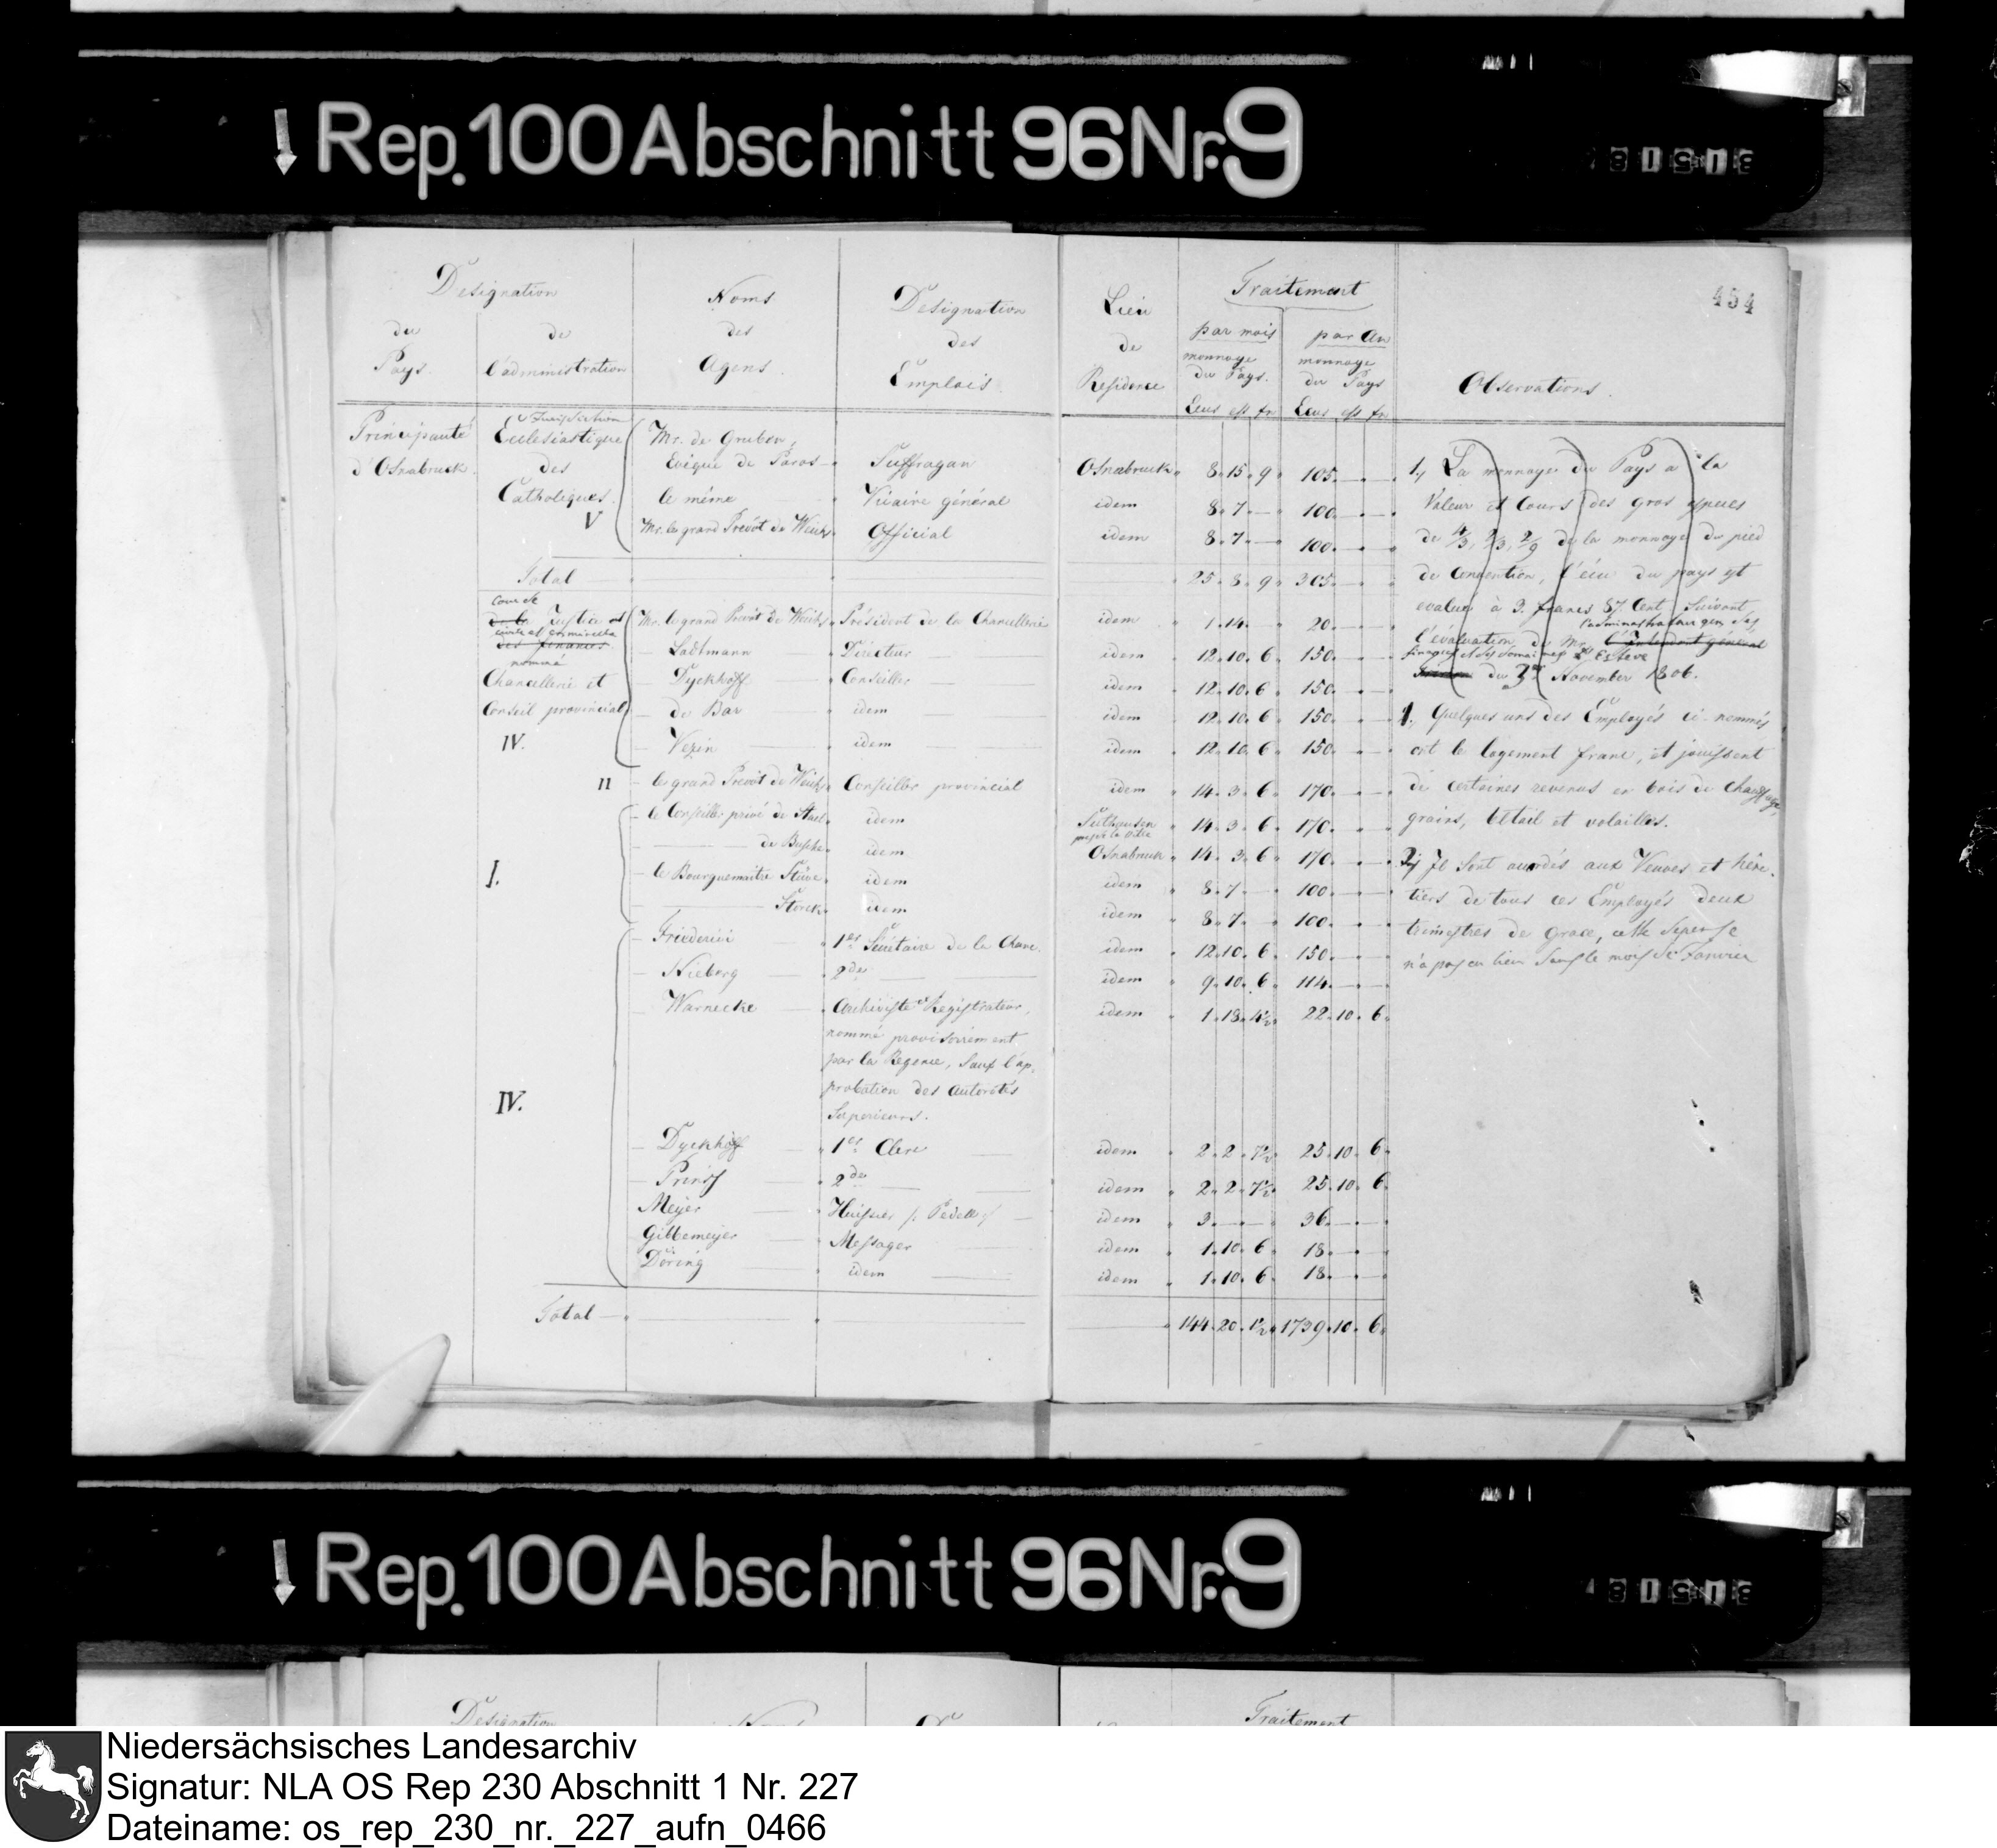 Rep. 100 Abschnitt 96 Nr. 9
454
Designation
du de
Pays. l'administration
Noms
des
Agens.
Designation
des
Emplois.
Lieu
de
Residence
Traitement
par mois par an
monnoye monnoye
du Pays. du Pays
Ecus Ecus
Observations.
Principauté
d'Osnabruck.
Jurisdiction
Ecclesiastique
des
Catholiques.
V
Mr. de Gruben,
Evêque de Paros Suffragan Osnabruck 8. 15. 9 105.
le même Vicaire général idem 8. 7. 100.
Mr. le grand Prevôt de Weichs Official idem 8. 7. 100.
Total 25. 8. 9 305.
Cour de
de la Justice et
civile et criminelle
des finances
nommé
Chancellerie et
Conseil provincial
IV.
Mr. le grand Prevôt de Weichs Président de la Chancellerie idem 1. 14. 20.
Lodtmann Directeur idem 12. 10. 6 150.
Dyckhoff Conseiller idem 12. 10. 6 150.
de Bar idem idem 12. 10. 6 150.
Vezin idem idem 12. 10. 6 150.
II
le grand Prevôt de Weichs Conseiller provincial idem 14. 3. 6 170.
I.
le Conseiller privé de Stael idem Sutthausen 14. 3. 6 170.
de Bussche idem Osnabruck 14. 3. 6 170.
le Bourguemaitre Stüve idem idem 8. 7 100.
Storck idem idem 8. 7. 100.
IV.
Friederici 1er Secrétaire de la Chanc. idem 12. 10. 6 150.
Nieberg 2de idem 9. 10. 6 114.
Warnecke Archiviste et Registrateur, idem 1. 18. 4½ 22. 10. 6
nommé provisoirement
par la Regence, sauf l'ap-
probation des Autorités
Superieurs.
Dyckhoff 1er Clerc idem 2. 2. 7½ 25. 10. 6
Prinss 2de idem 2. 2. 7½ 25. 10. 6
Meyer Huissier /: Pedell :/ idem 3. 36.
Gibbemeyer Messager idem 1. 10. 6 18.
Döring idem idem 1. 10. 6 18.
Total 144. 20. 1½ 1739. 10. 6
1, La monnoye du Pays a la
Valeur et Cours des gros especes
de 4/3, 2/3, 2/9 de la monnoye du pied
de Convention, l'écu du pays est
evalué à 3. francs 87. Cent. Suivant
l'administrateur gen. des
l'évaluation de Mr. l'Intendant général
finances et des domaines Mr Esteve
du 3e November 1806.
1. Quelques uns des Employés ci-nommés
ont le logement franc, et jouissent
de certaines revenus en bois de chauffage,
grains, bétail et volailles.
2, Il sont accordés aux Veuves et héri-
tiers de tous ces Employés deux
trimestres de Grace, cette depense
n'a pas eu lieu dans le mois de Janvier
Rep. 100 Abschnitt 96 Nr. 9
Designation
Traitement
Niedersächsisches Landesarchiv
Signatur: NLA OS Rep 230 Abschnitt 1 Nr. 227
Dateiname: os_rep_230_nr._227_aufn_0466